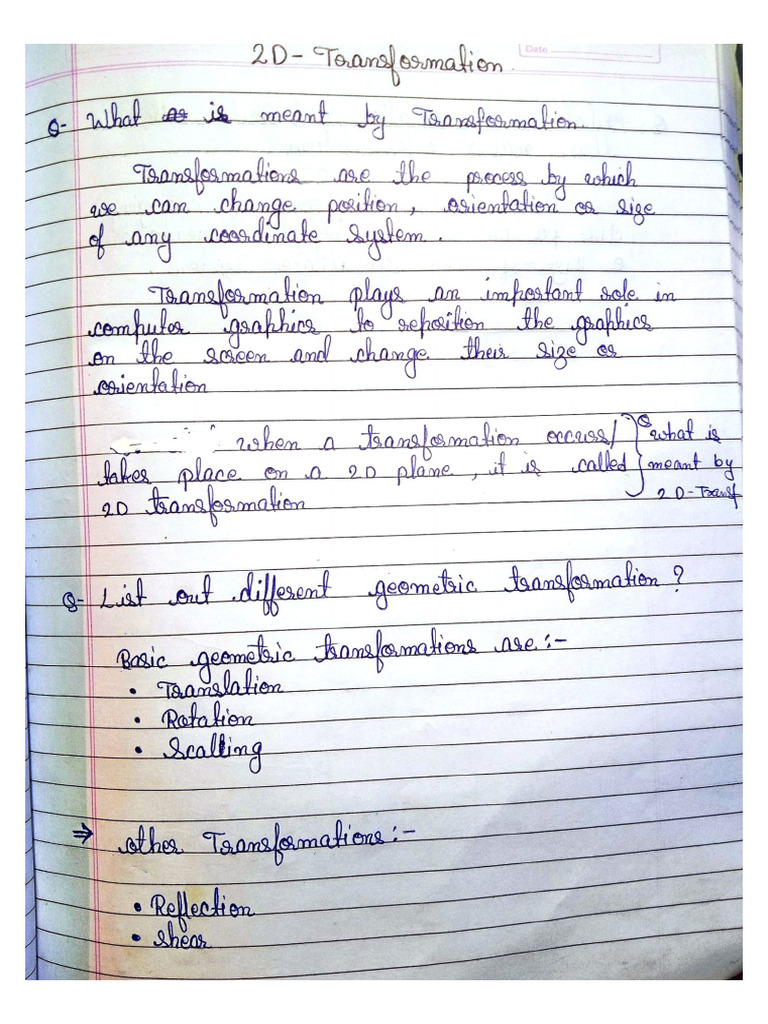 2D - Transformation
Date
Q- What is meant by Transformation.
Transformations are the process by which
we can change position, orientation or size
of any coordinate system.
Transformation plays an important role in
computer graphics to reposition the graphics
on the screen and change their size or
orientation
when a transformation occurs/
takes place on a 2D plane, it is called
2D transformation
Q what is
meant by
2D-Transf
Q- List out different geometric transformation?
Basic geometric transformations are:-
• Translation
• Rotation
• Scalling
⇒ other Transformations:-
• Reflection
• Shear